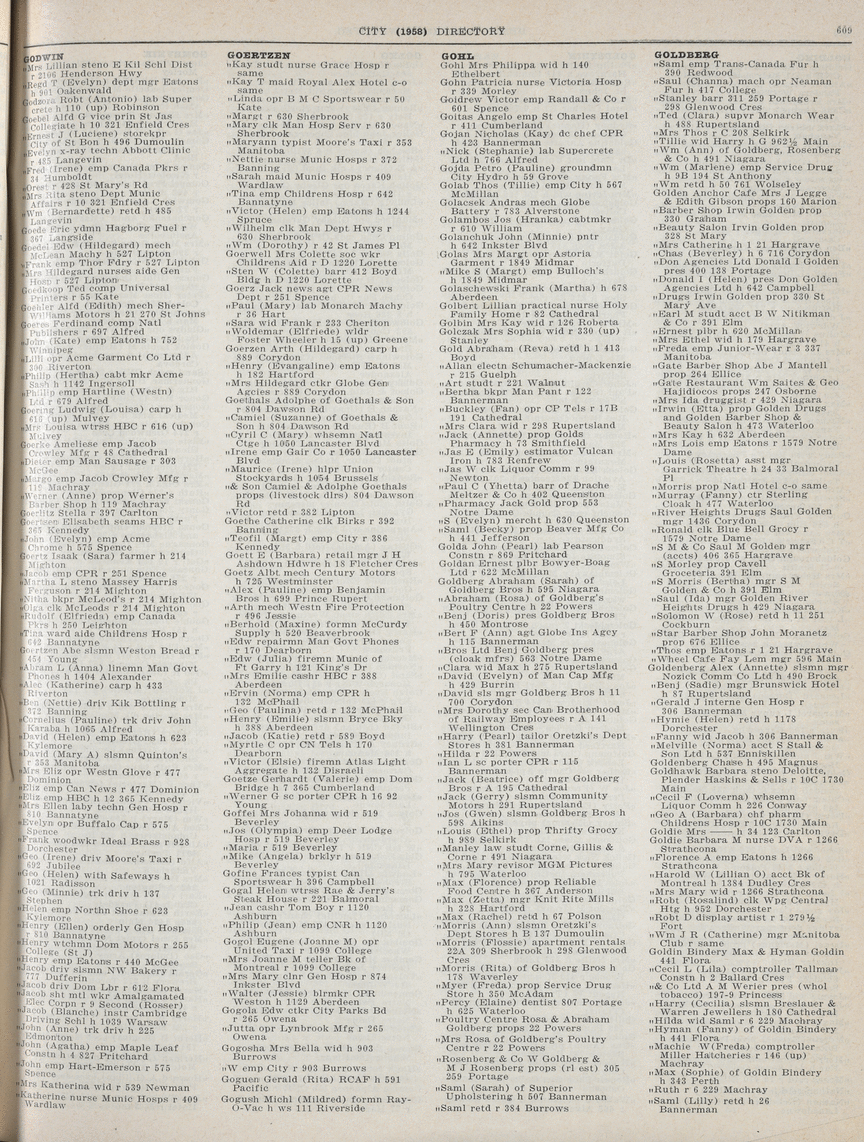 CITY (1958) DIRECTORY
609
GODWIN
„Mrs Lillian steno E Kil Schl Dist
r 2106 Henderson Hwy
„Regd T (Evelyn) dept mgr Eatons
h 901 Oakenwald
Godzora Robt (Antonio) lab Super
crete h 110 (up) Robinson
Goebel Alfd G vice prin St Jas
Collegiate h 10 321 Enfield Cres
„Ernest J (Luciene) storekpr
City of St Bon h 496 Dumoulin
„Evelyn x-ray techn Abbott Clinic
r 485 Langevin
„Fred (Irene) emp Canada Pkrs r
34 Humboldt
„Orest r 428 St Mary's Rd
„Mrs Rita steno Dept Munic
Affairs r 10 321 Enfield Cres
„Wm (Bernardette) retd h 485
Langevin
Goede Eric ydmn Hagborg Fuel r
367 Langside
Goedel Edw (Hildegard) mech
McLean Machy h 527 Lipton
„Frank emp Thor Fdry r 527 Lipton
„Mrs Hildegard nurses aide Gen
Hosp r 527 Lipton
Goedkoop Ted comp Universal
Printers r 55 Kate
Goehler Alfd (Edith) mech Sher-
Williams Motors h 21 270 St Johns
Goeres Ferdinand comp Natl
Publishers r 697 Alfred
„John (Kate) emp Eatons h 752
Winnipeg
„Lilli opr Acme Garment Co Ltd r
300 Riverton
„Philip (Hertha) cabt mkr Acme
Sash h 1142 Ingersoll
„Phillip emp Hartline (Westn)
Ltd r 679 Alfred
Goering Ludwig (Louisa) carp h
616 (up) Mulvey
„Mrs Louisa wtrss HBC r 616 (up)
Mulvey
Goerke Ameliese emp Jacob
Crowley Mfg r 48 Cathedral
„Dieter emp Man Sausage r 303
McGee
„Margo emp Jacob Crowley Mfg r
119 Machray
„Werner (Anne) prop Werner's
Barber Shop h 119 Machray
Goerlitz Stella r 397 Carlton
Goertzen Elisabeth seams HBC r
365 Kennedy
„John (Evelyn) emp Acme
Chrome h 575 Spence
Goertz Isaak (Sara) farmer h 214
Mighton
„Jacob emp CPR r 251 Spence
„Martha L steno Massey Harris
Ferguson r 214 Mighton
„Nitha bkpr McLeod's r 214 Mighton
„Olga clk McLeods r 214 Mighton
„Rudolf (Elfrieda) emp Canada
Pkrs h 250 Leighton
„Tina ward aide Childrens Hosp r
642 Bannatyne
Goertzen Abe slsmn Weston Bread r
454 Young
„Abram L (Anna) linemn Man Govt
Phones h 1404 Alexander
„Alec (Katherine) carp h 433
Riverton
„Ben (Nettie) driv Kik Bottling r
372 Banning
„Cornelius (Pauline) trk driv John
Karaba h 1065 Alfred
„David (Helen) emp Eatons h 623
Kylemore
„David (Mary A) slsmn Quinton's
r 353 Manitoba
„Mrs Eliz opr Westn Glove r 477
Dominion
„Eliz emp Can News r 477 Dominion
„Eliz emp HBC h 12 365 Kennedy
„Mrs Ellen laby techn Gen Hosp r
810 Bannatyne
„Evelyn opr Buffalo Cap r 575
Spence
„Frank woodwkr Ideal Brass r 928
Dorchester
„Geo (Irene) driv Moore's Taxi r
692 Jubilee
„Geo (Helen) with Safeways h
1021 Radisson
„Geo (Minnie) trk driv h 137
Stephen
„Helen emp Northn Shoe r 623
Kylemore
„Henry (Ellen) orderly Gen Hosp
r 810 Bannatyne
„Henry wtchmn Dom Motors r 255
College (St J)
„Henry emp Eatons r 440 McGee
„Jacob driv slsmn NW Bakery r
777 Dufferin
„Jacob driv Dom Lbr r 612 Flora
„Jacob sht mtl wkr Amalgamated
Elec Corpn r 9 Second (Rosser)
„Jacob (Blanche) instr Cambridge
Driving Schl h 1039 Warsaw
„John (Anne) trk driv h 225
Edmonton
„John (Agatha) emp Maple Leaf
Constn h 4 827 Pritchard
„John emp Hart-Emerson r 575
Spence
„Mrs Katherina wid r 539 Newman
„Katherine nurse Munic Hosps r 409
Wardlaw
GOERTZEN
„Kay studt nurse Grace Hosp r
same
„Kay T maid Royal Alex Hotel c-o
same
„Linda opr B M C Sportswear r 50
Kate
„Margt r 630 Sherbrook
„Mary clk Man Hosp Serv r 630
Sherbrook
„Maryann typist Moore's Taxi r 353
Manitoba
„Nettie nurse Munic Hosps r 372
Banning
„Sarah maid Munic Hosps r 409
Wardlaw
„Tina emp Childrens Hosp r 642
Bannatyne
„Victor (Helen) emp Eatons h 1244
Spruce
„Wilhelm clk Man Dept Hwys r
630 Sherbrook
„Wm (Dorothy) r 42 St James Pl
Goerwell Mrs Colette soc wkr
Childrens Aid r D 1220 Lorette
„Sten W (Colette) barr 412 Boyd
Bldg h D 1220 Lorette
Goerz Jack news agt CPR News
Dept r 251 Spence
„Paul (Mary) lab Monarch Machy
r 36 Hart
„Sara wid Frank r 233 Cheriton
„Woldemar (Elfriede) wldr
Foster Wheeler h 15 (up) Greene
Goerzen Arth (Hildegard) carp h
889 Corydon
„Henry (Evangaline) emp Eatons
h 182 Hartford
„Mrs Hildegard ctkr Globe Gen
Agcies r 889 Corydon
Goethals Adolphe of Goethals & Son
r 804 Dawson Rd
„Camiel (Suzanne) of Goethals &
Son h 804 Dawson Rd
„Cyril C (Mary) whsemn Natl
Ctge h 1050 Lancaster Blvd
„Irene emp Gair Co r 1050 Lancaster
Blvd
„Maurice (Irene) hlpr Union
Stockyards h 1054 Brussels
„& Son Camiel & Adolphe Goethals
props (livestock dlrs) 804 Dawson
Rd
„Victor retd r 382 Lipton
Goethe Catherine clk Birks r 392
Banning
„Teofil (Margt) emp City r 386
Kennedy
Goett E (Barbara) retail mgr J H
Ashdown Hdwre h 18 Fletcher Cres
Goetz Albt mech Century Motors
h 725 Westminster
„Alex (Pauline) emp Benjamin
Bros h 699 Prince Rupert
„Arth mech Westn Fire Protection
r 496 Jessie
„Berhold (Maxine) formn McCurdy
Supply h 520 Beaverbrook
„Edw repairmn Man Govt Phones
r 170 Dearborn
„Edw (Julia) firemn Munic of
Ft Garry h 121 King's Dr
„Mrs Emilie cashr HBC r 388
Aberdeen
„Ervin (Norma) emp CPR h
132 McPhail
„Geo (Paulina) retd r 132 McPhail
„Henry (Emilie) slsmn Bryce Bky
h 388 Aberdeen
„Jacob (Katie) retd r 589 Boyd
„Myrtle C opr CN Tels h 170
Dearborn
„Victor (Elsie) firemn Atlas Light
Aggregate h 132 Disraeli
Goetze Gerhardt (Valerie) emp Dom
Bridge h 7 365 Cumberland
„Werner G sc porter CPR h 16 92
Young
Goffei Mrs Johanna wid r 519
Beverley
„Jos (Olympia) emp Deer Lodge
Hosp r 519 Beverley
„Maria r 519 Beverley
„Mike (Angela) brklyr h 519
Beverley
Gofine Frances typist Can
Sportswear h 396 Campbell
Gogal Helen wtrss Rae & Jerry's
Steak House r 221 Balmoral
„Jean cashr Tom Boy r 1120
Ashburn
„Philip (Jean) emp CNR h 1120
Ashburn
Gogol Eugene (Joanne M) opr
United Taxi r 1099 College
„Mrs Joanne M teller Bk of
Montreal r 1099 College
„Mrs Mary clnr Gen Hosp r 874
Inkster Blvd
„Walter (Jessie) blrmkr CPR
Weston h 1129 Aberdeen
Gogola Edw ctkr City Parks Bd
r 265 Owena
„Jutta opr Lynbrook Mfg r 265
Owena
Gogosha Mrs Bella wid h 903
Burrows
„W emp City r 903 Burrows
Goguen Gerald (Rita) RCAF h 591
Pacific
Gogush Michl (Mildred) formn Ray-
O-Vac h ws 111 Riverside
GOHL
Gohl Mrs Philippa wid h 140
Ethelbert
Gohn Patricia nurse Victoria Hosp
r 339 Morley
Goidrew Victor emp Randall & Co r
601 Spence
Goitas Angelo emp St Charles Hotel
r 411 Cumberland
Gojan Nicholas (Kay) dc chef CPR
h 423 Bannerman
„Nick (Stephanie) lab Supercrete
Ltd h 766 Alfred
Gojda Petro (Pauline) groundmn
City Hydro h 59 Grove
Golab Thos (Tillie) emp City h 567
McMillan
Golacsek Andras mech Globe
Battery r 783 Alverstone
Golambos Jos (Hranka) cabtmkr
r 610 William
Golanchuk John (Minnie) pntr
h 642 Inkster Blvd
Golas Mrs Margt opr Astoria
Garment r 1849 Midmar
„Mike S (Margt) emp Bulloch's
h 1849 Midmar
Golaschewski Frank (Martha) h 678
Aberdeen
Golbert Lillian practical nurse Holy
Family Home r 82 Cathedral
Golbin Mrs Kay wid r 126 Roberta
Golczak Mrs Sophia wid r 330 (up)
Stanley
Gold Abraham (Reva) retd h 1 413
Boyd
„Allan electn Schumacher-Mackenzie
r 215 Guelph
„Art studt r 221 Walnut
„Bertha bkpr Man Pant r 122
Bannerman
„Buckley (Fan) opr CP Tels r 17B
191 Cathedral
„Mrs Clara wid r 298 Rupertsland
„Jack (Annette) prop Golds
Pharmacy h 73 Smithfield
„Jas E (Emily) estimator Vulcan
Iron h 783 Renfrew
„Jas W clk Liquor Comm r 99
Newton
„Paul C (Yhetta) barr of Drache
Meltzer & Co h 402 Queenston
„Pharmacy Jack Gold prop 553
Notre Dame
„S (Evelyn) mercht h 630 Queenston
„Saml (Becky) prop Beaver Mfg Co
h 441 Jefferson
Golda John (Pearl) lab Pearson
Constn r 869 Pritchard
Goldan Ernest plbr Bowyer-Boag
Ltd r 622 McMillan
Goldberg Abraham (Sarah) of
Goldberg Bros h 595 Niagara
„Abraham (Rosa) of Goldberg's
Poultry Centre h 22 Powers
„Benj (Doris) pres Goldberg Bros
h 450 Montrose
„Bert F (Ann) agt Globe Ins Agcy
h 115 Bannerman
„Bros Ltd Benj Goldberg pres
(cloak mfrs) 563 Notre Dame
„Clara wid Max h 275 Rupertsland
„David (Evelyn) of Man Cap Mfg
h 429 Burrin
„David sls mgr Goldberg Bros h 11
700 Corydon
„Mrs Dorothy sec Can Brotherhood
of Railway Employees r A 141
Wellington Cres
„Harry (Pearl) tailor Oretzki's Dept
Stores h 381 Bannerman
„Hilda r 22 Powers
„Ian L sc porter CPR r 115
Bannerman
„Jack (Beatrice) off mgr Goldberg
Bros r A 195 Cathedral
„Jack (Gerry) slsmn Community
Motors h 291 Rupertsland
„Jos (Gwen) slsmn Goldberg Bros h
598 Aikins
„Louis (Ethel) prop Thrifty Grocy
h 989 Selkirk
„Manley law studt Corne, Gillis &
Corne r 491 Niagara
„Mrs Mary revisor MGM Pictures
h 795 Waterloo
„Max (Florence) prop Reliable
Food Centre h 367 Anderson
„Max (Zetta) mgr Knit Rite Mills
h 328 Hartford
„Max (Rachel) retd h 67 Polson
„Morris (Ann) slsmn Oretzki's
Dept Stores h B 137 Dumoulin
„Morris (Flossie) apartment rentals
22A 309 Sherbrook h 298 Glenwood
Cres
„Morris (Rita) of Goldberg Bros h
178 Waverley
„Myer (Freda) prop Service Drug
Store h 350 McAdam
„Percy (Elaine) dentist 807 Portage
h 625 Waterloo
„Poultry Centre Rosa & Abraham
Goldberg props 22 Powers
„Mrs Rosa of Goldberg's Poultry
Centre r 22 Powers
„Rosenberg & Co W Goldberg &
M J Rosenberg props (rl est) 305
259 Portage
„Saml (Sarah) of Superior
Upholstering h 507 Bannerman
„Saml retd r 384 Burrows
GOLDBERG
„Saml emp Trans-Canada Fur h
390 Redwood
„Saul (Channa) mach opr Neaman
Fur h 417 College
„Stanley barr 311 259 Portage r
298 Glenwood Cres
„Ted (Clara) supvr Monarch Wear
h 488 Rupertsland
„Mrs Thos r C 208 Selkirk
„Tillie wid Harry h G 962½ Main
„Wm (Ann) of Goldberg, Rosenberg
& Co h 491 Niagara
„Wm (Marlene) emp Service Drug
h 9B 194 St Anthony
„Wm retd h 50 761 Wolseley
Golden Anchor Cafe Mrs J Legge
& Edith Gibson props 160 Marion
„Barber Shop Irwin Golden prop
330 Graham
„Beauty Salon Irvin Golden prop
328 St Mary
„Mrs Catherine h 1 21 Hargrave
„Chas (Beverley) h 6 716 Corydon
„Don Agencies Ltd Donald I Golden
pres 400 138 Portage
„Donald I (Helen) pres Don Golden
Agencies Ltd h 642 Campbell
„Drugs Irwin Golden prop 330 St
Mary Ave
„Earl M studt acct B W Nitikman
& Co r 391 Elm
„Ernest plbr h 620 McMillan
„Mrs Ethel wid h 179 Hargrave
„Freda emp Junior-Wear r 3 337
Manitoba
„Gate Barber Shop Abe J Mantell
prop 264 Ellice
„Gate Restaurant Wm Saites & Geo
Hajidiocos props 247 Osborne
„Mrs Ida druggist r 429 Niagara
„Irwin (Etta) prop Golden Drugs
and Golden Barber Shop &
Beauty Salon h 473 Waterloo
„Mrs Kay h 632 Aberdeen
„Mrs Lois emp Eatons r 1579 Notre
Dame
„Louis (Rosetta) asst mgr
Garrick Theatre h 24 33 Balmoral
Pl
„Morris prop Natl Hotel c-o same
„Murray (Fanny) ctr Sterling
Cloak h 477 Waterloo
„River Heights Drugs Saul Golden
mgr 1436 Corydon
„Ronald clk Blue Bell Grocy r
1579 Notre Dame
„S M & Co Saul M Golden mgr
(accts) 406 365 Hargrave
„S Morley prop Cavell
Groceteria 291 Elm
„S Morris (Bertha) mgr S M
Golden & Co h 391 Elm
„Saul (Ida) mgr Golden River
Heights Drugs h 429 Niagara
„Solomon W (Rose) retd h 11 251
Cockburn
„Star Barber Shop John Moranetz
prop 676 Ellice
„Thos emp Eatons r 1 21 Hargrave
„Wheel Cafe Fay Lem mgr 596 Main
Goldenberg Alex (Annette) slsmn mgr
Nozick Comm Co Ltd h 490 Brock
„Benj (Sadie) mgr Brunswick Hotel
h 87 Rupertsland
„Gerald J interne Gen Hosp r
306 Bannerman
„Hymie (Helen) retd h 1178
Dorchester
„Fanny wid Jacob h 306 Bannerman
„Melville (Norma) acct S Stall &
Son Ltd h 537 Enniskillen
Goldenberg Chase h 495 Magnus
Goldhawk Barbara steno Deloitte,
Plender Haskins & Sells r 10C 1730
Main
„Cecil F (Loverna) whsemn
Liquor Comm h 226 Conway
„Geo A (Barbara) chf pharm
Childrens Hosp r 10C 1730 Main
Goldie Mrs —— h 34 123 Carlton
Goldie Barbara M nurse DVA r 1266
Strathcona
„Florence A emp Eatons h 1266
Strathcona
„Harold W (Lillian O) acct Bk of
Montreal h 1384 Dudley Cres
„Mrs Mary wid r 1266 Strathcona
„Robt (Rosalind) clk Wpg Central
Htg h 952 Dorchester
„Robt D display artist r 1 279½
Fort
„Wm J R (Catherine) mgr Manitoba
Club r same
Goldin Bindery Max & Hyman Goldin
441 Flora
„Cecil L (Lila) comptroller Tallman
Constn h 2 Ballard Cres
„& Co Ltd A M Werier pres (whol
tobacco) 197-9 Princess
„Harry (Cecilia) slsmn Breslauer &
Warren Jewellers h 180 Cathedral
„Hilda wid Saml r 6 229 Machray
„Hyman (Fanny) of Goldin Bindery
h 441 Flora
„Machie W(Freda) comptroller
Miller Hatcheries r 146 (up)
Machray
„Max (Sophie) of Goldin Bindery
h 343 Perth
„Ruth r 6 229 Machray
„Saml (Lilly) retd h 26
Bannerman